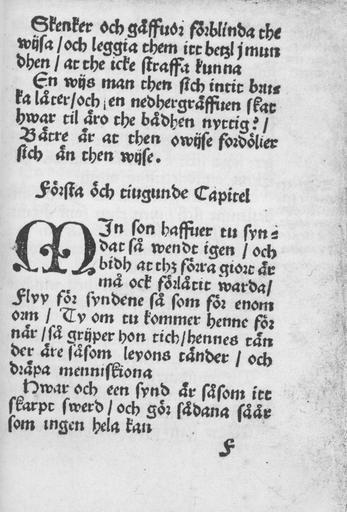 Skenker och gåffuor förblinda the
wijsa / och leggia them itt betzl j mun
dhen / at the icke straffa kunna
En wijs man then sich intit bru⸗
ka låter / och ien nedhergräffuen skat
hwar til äro the bådhen nyttig? /
Bätre är at then owijse fordölier
sich än then wijse.
Första öch tiugunde Capitel
MIn son haffuer tu syn⸗
dat så wendt igen / och
bidh at thz förra giort är
må ock förlåtit warda /
Flyy för syndene så som för enom
orm / Ty om tu kommer henne för
när / så grijper hon tich / hennes tän
der äre såsom leyons tänder / och
dräpa menniskiona
Hwar och een synd är såsom itt
skarpt swerd / och gör sådana såår
som ingen hela kan
F